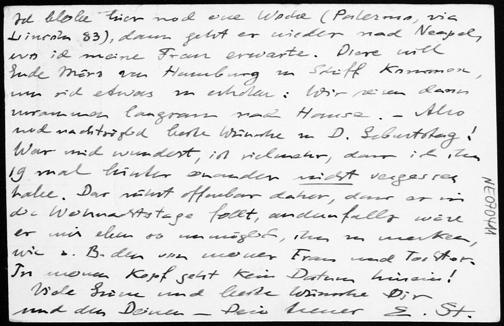 Ich bleibe hier noch eine Woche (Palermo, via
Lincoln 83), dann geht es wieder nach Neapel,
wo ich meine Frau erwarte. Diese will
Ende März von Hamburg zu Schiff kommen,
um sich etwas zu erholen. Wir reisen dann
zusammen langsam nach Hause. – Also
noch nachträglich beste Wünsche zu D. Geburtstag!
Was mich wundert, ist vielmehr, dass ich ihn
19 mal hinter einander nicht vergessen
habe. Das rührt offenbar daher, dass er in
die Weihnachtstage fällt, andernfalls wäre
es mir eben so unmöglich, ihn zu merken,
wie z. B. den von meiner Frau und Tochter.
In meinen Kopf geht kein Datum hinein!
Viele Grüsse und beste Wünsche Dir
und den Deinen – Dein treuer E. St.
NE0704AA